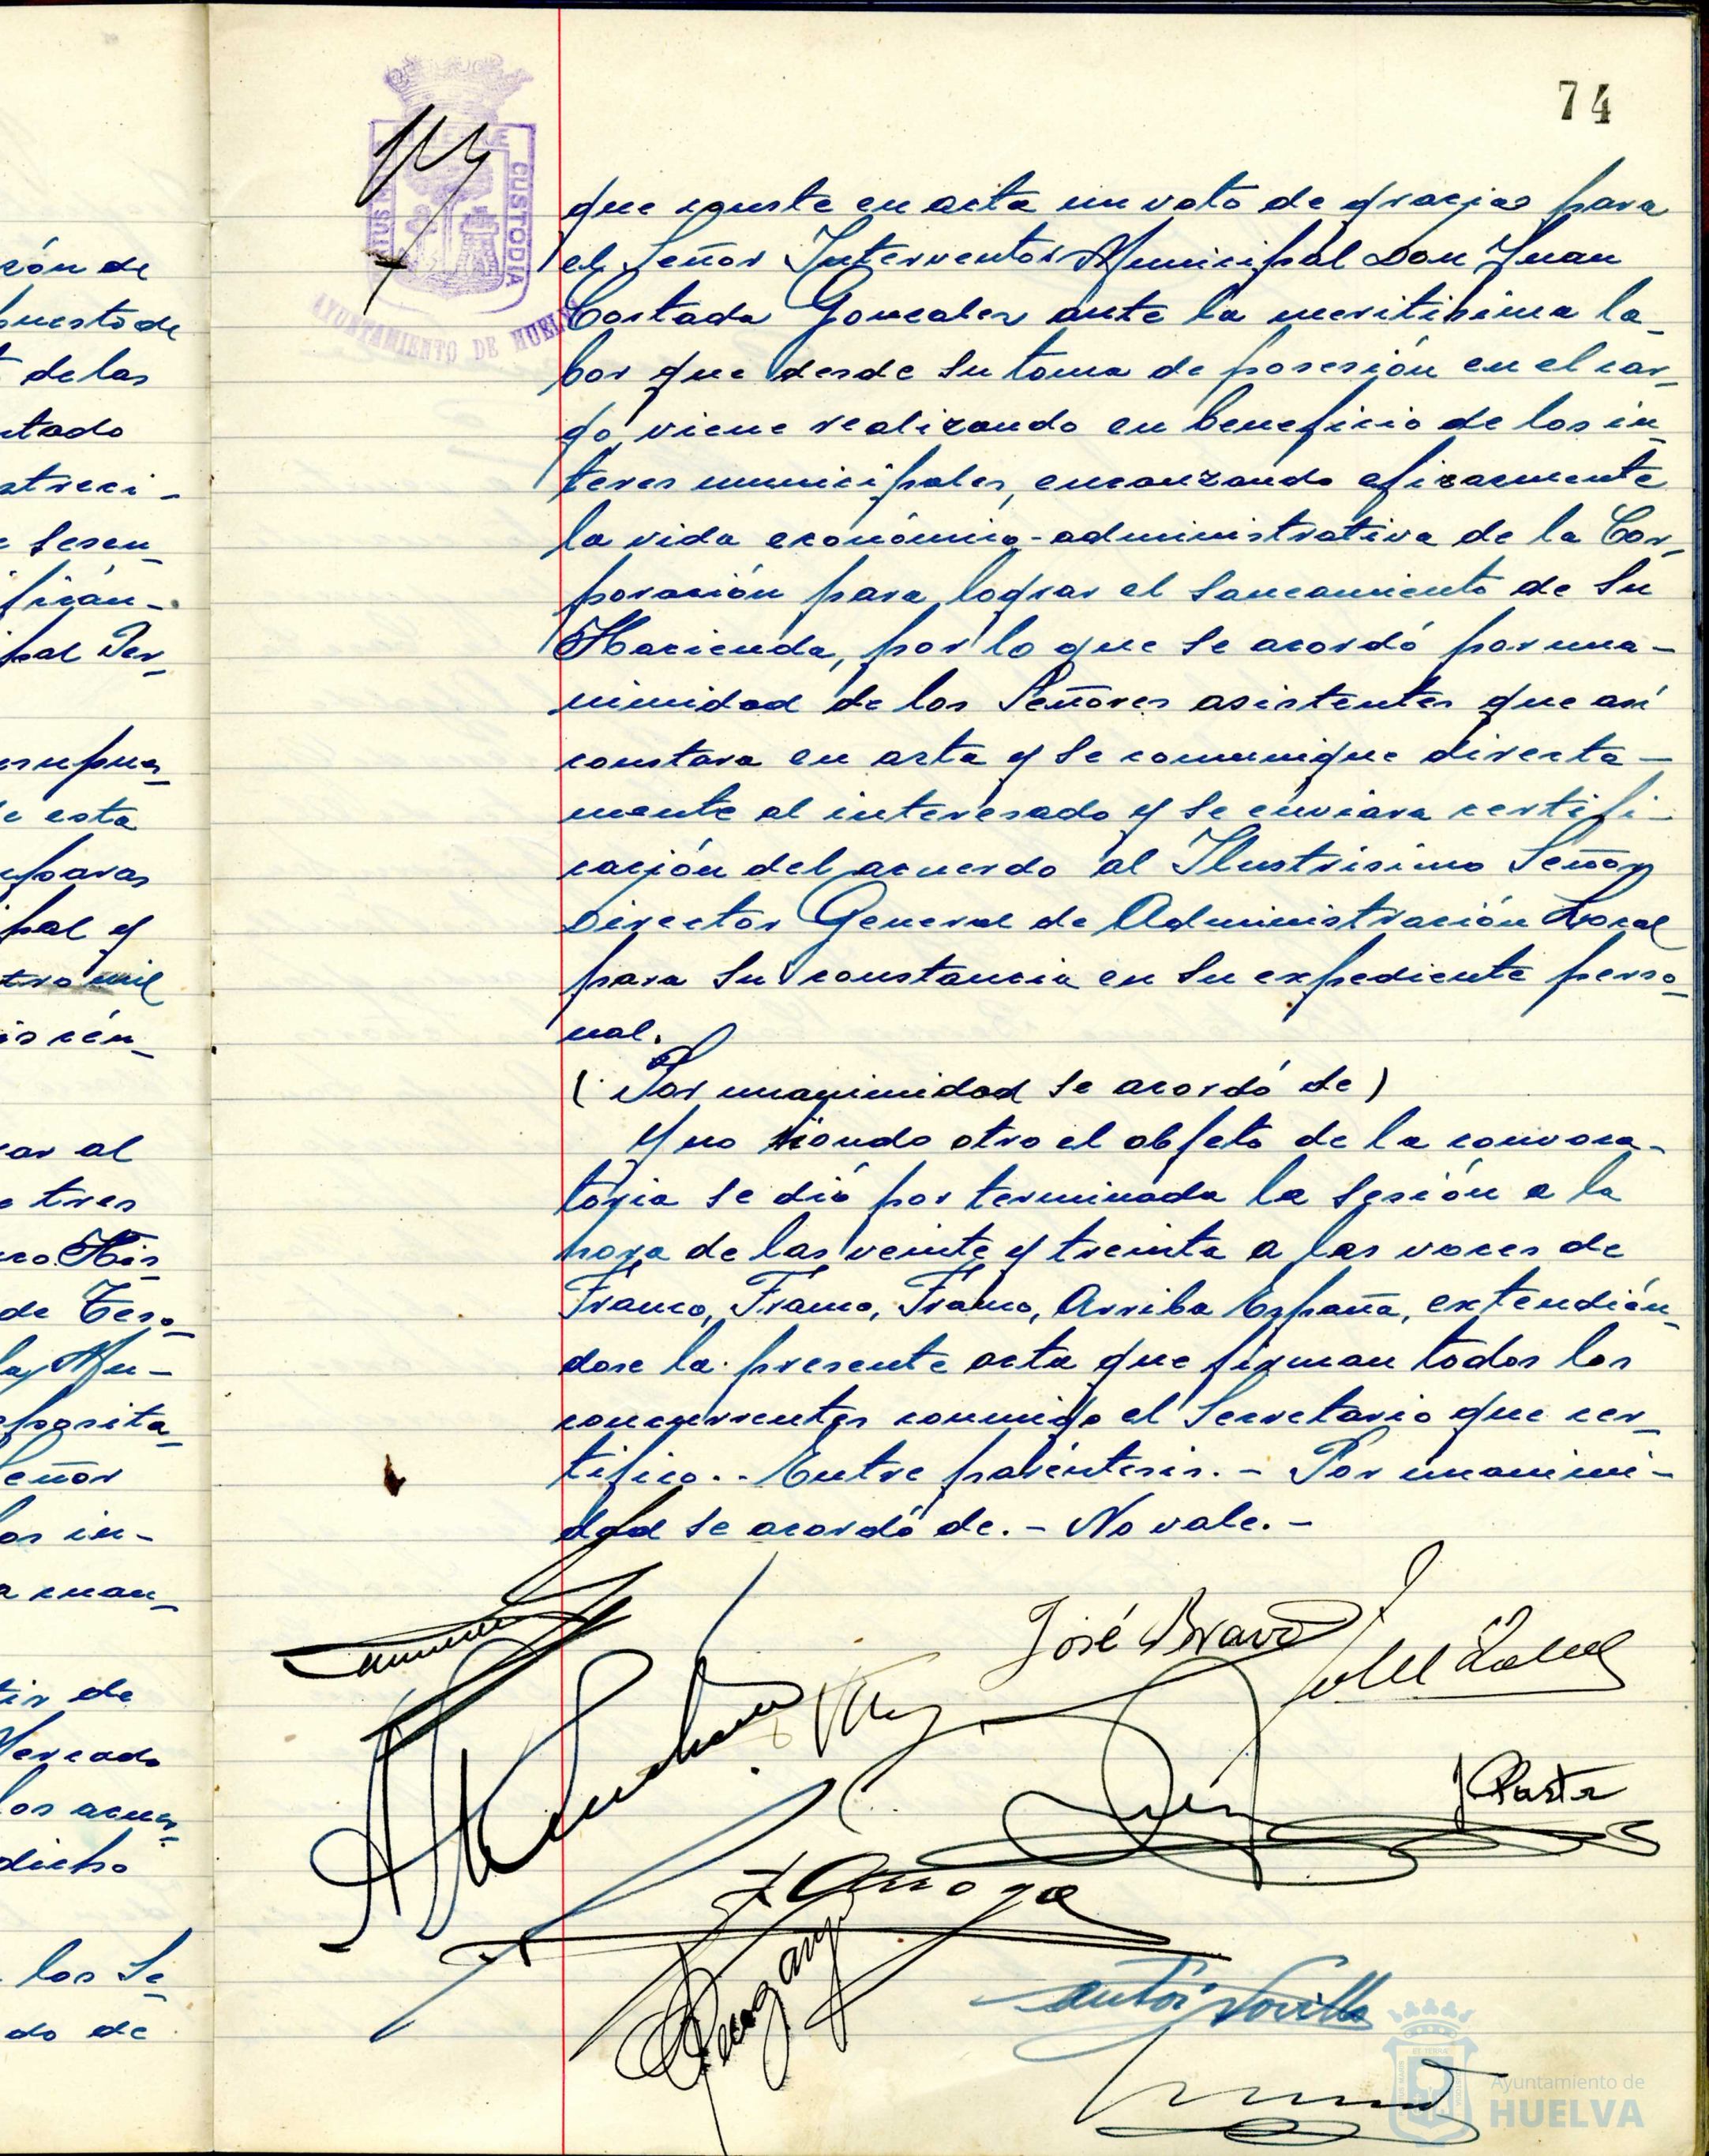 74
que conste en acta un voto de gracias para
el Señor Interventor Municipal Don Juan
Cortada Gonzalez ante la meritisima la-
bor que desde su toma de posesión en el car-
go, viene realizando en beneficio de los in-
teres municipales, encauzando eficazmente
la vida económico-administrativa de la Cor-
poración para lograr el saneamiento de su
Hacienda, por lo que se acordó por una-
nimidad de los Señores asistentes que así
constara en acta y se comunique directa-
mente al interesado y se enviara certifi-
cación del acuerdo al Ilustrisimo Señor
Director General de Administración Local
para su constancia en su expediente perso-
nal.
(Por unanimidad se acordó de)
Y no siendo otro el objeto de la convoca-
toria se dió por terminada la sesión a la
hora de las veinte y treinta a las voces de
Franco, Franco, Franco, Arriba España, extendién-
dose la presente acta que firman todos los
concurrentes conmigo el Secretario que cer-
tifico.- Entre paréntesis.- Por unanimi-
dad se acordó de.- No vale.-
José Bravo
J Pastor
Antoi Sevilla
CUSTODIA
AYUNTAMIENTO DE HUELVA
zón de
puesto de
de las
ntado
streci-
e sesen
ficán-
pal Per-
esupues-
e esta
uparas
pal y
tro mil
is cén-
car al
e tres
co His-
de Teso-
la Mu-
eposita-
eñor
os in-
a cuan-
tir de
Mercado
los acuer-
dicho
los Se-
do de
Ayuntamiento de
HUELVA